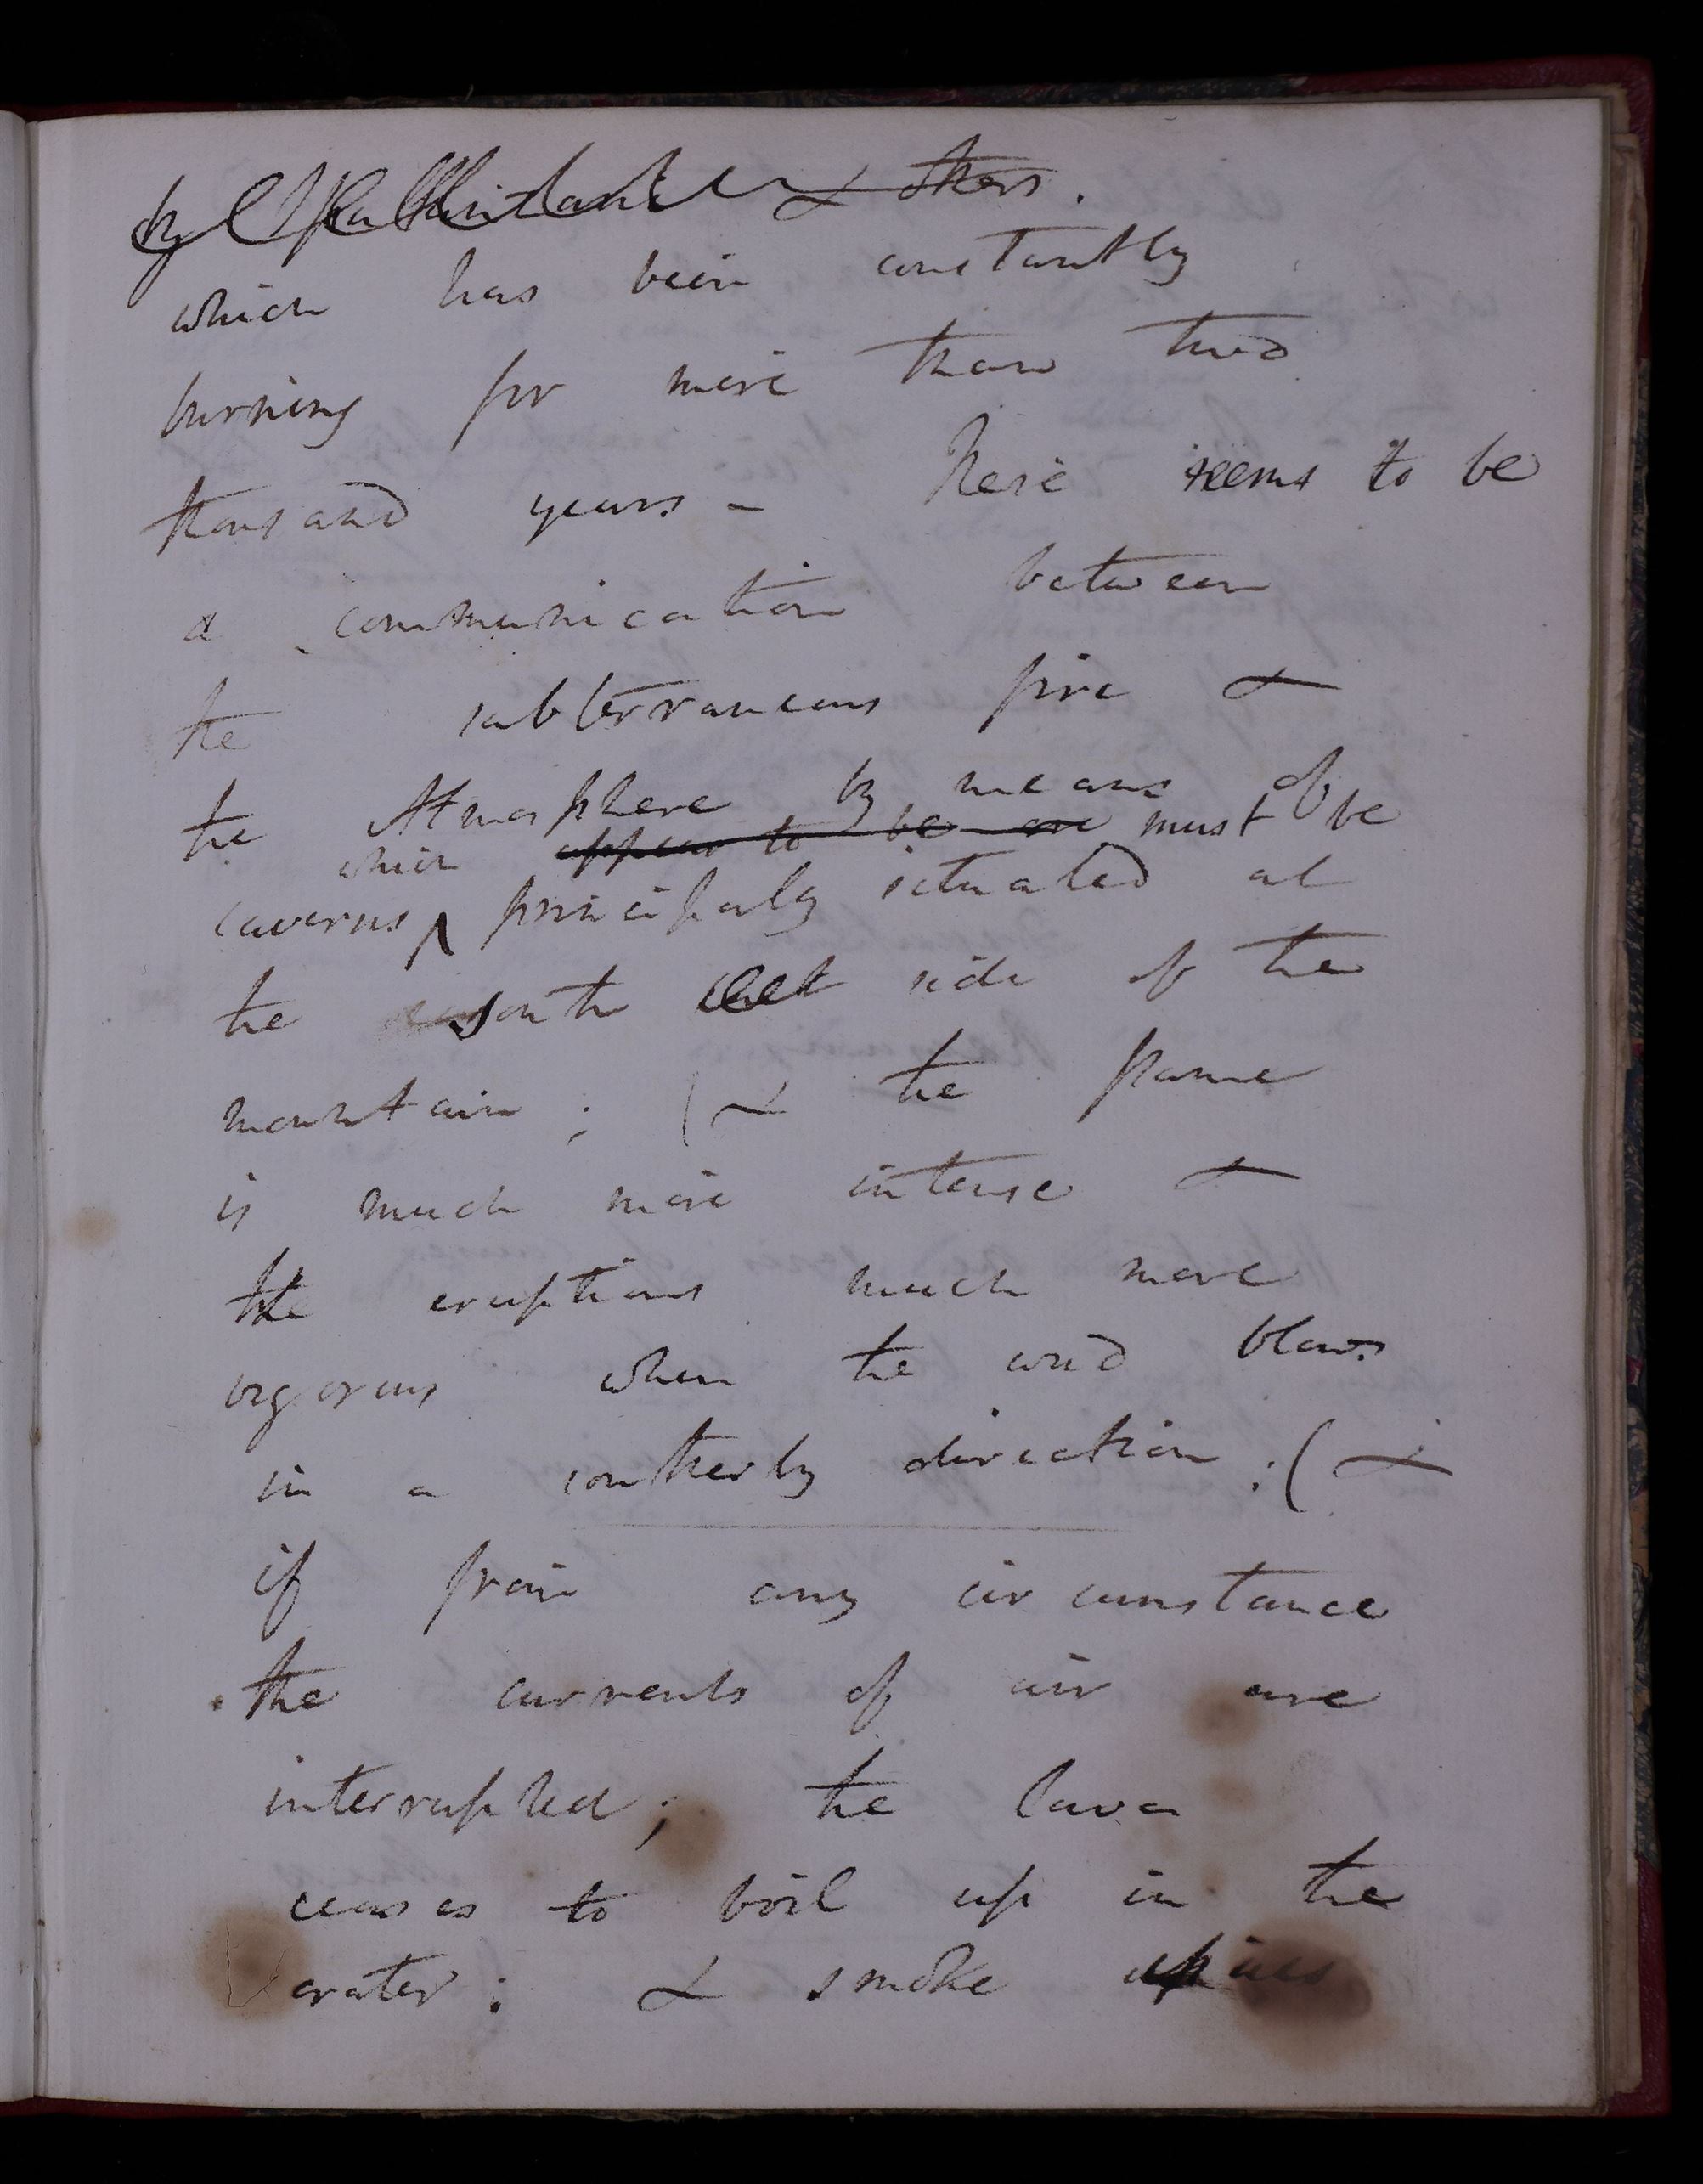 by Spallanzani & others.
which has been constantly
burning for more than two
thousand years - There seems to be
a communication between
the subterraneous fire &
the Atmosphere by means of
which appear to be are must be
caverns ^ principaly situated at
the south west side of the
mountain ; ( & the flame
is much more intense &
the eruptions much more
vigorous when the wind blows
in a southerly direction ; ( &
if from any circumstance
the currents of air are
interrupted ; the lava
ceases to boil up in the
crater : & smoke